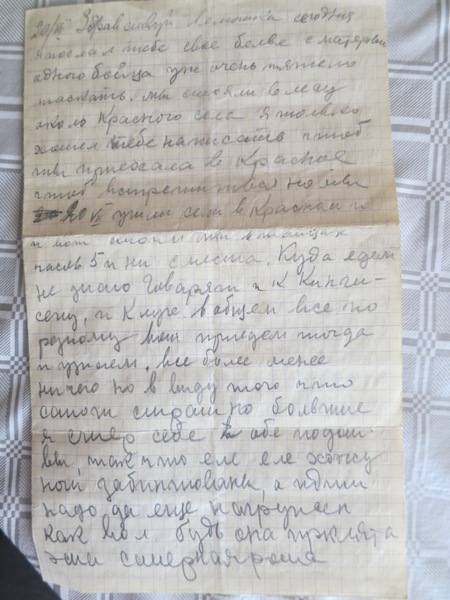 20/VI Здравствуй Лёлюшка сегодня
я послал тебе свое белье с матерью
одного бойца уж очень тяжело
таскать. мы стояли в лесу
около Красного села я только
хотел тебе написать чтоб
ты приехала в Красное
чтоб встретиться но мы
20 VI ушли сели в Красном и
и вот стоим мы в
часов 5 и ни с места. Куда едем
не знаю Говарят и к Кинги-
сепу, и к Луге. В общем все по
разному вот приедем тогда
и узнаем. Все более менее
ничего но в виду того что
сапоги страшно большие
я стер себе обе подош-
вы, так что еле еле хожу
ноги забинтованы, а идти
надо да еще нагружен
как вол. будь она проклята
эта